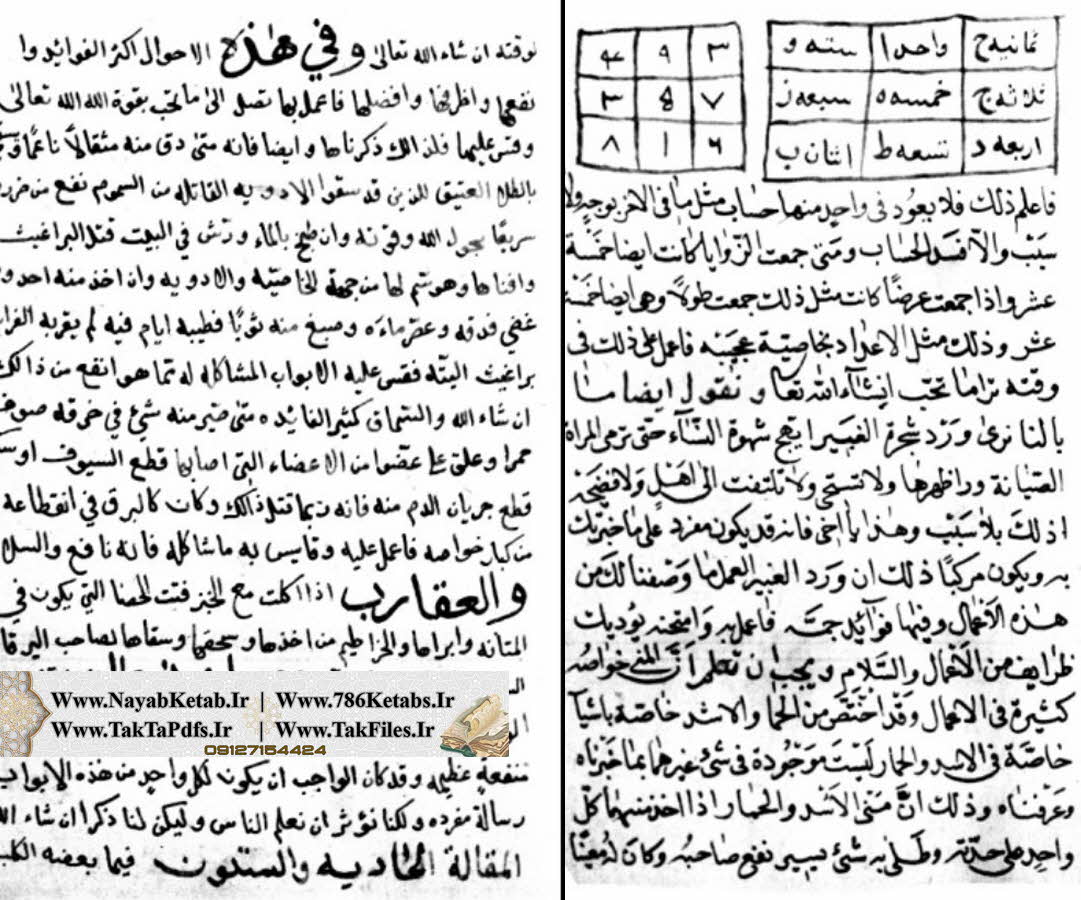 ثمانيه ح واحد ا سته و
ثلاثه ج خمسه ه سبعه ز
اربعه د تسعه ط اثنان ب
فاعلم ذلك فلا يعود فى واحد منها حساب مثل ما فى الاخر بوجه ولا
سبب والا فسد الحساب ومتى جمعت الزوايا كانت ايضا خمسة
عشر واذا جمعت عرضا كانت مثل ذلك جمعت طولا وهى ايضا خمسة
عشر وذلك مثل الاعداد بخاصية عجيبه فاعمل على ذلك فى
وقته ترا ما تحب انشاء الله تعا ونقول ايضا ما
بالنا نرى ورد شجرة الغبيرا يهيج شهوة النساء حتى ترمى المراة
الصيانة ورا ظهرها ولا تستحى ولا تلتفت الى اهل ولا فضيحة
اذ لك بلا سبب وهذا يا اخى فانه قد يكون مفرد على ما خبرتك
به ويكون مركبا ذلك ان ورد الغبير العمل ما وصفنا لك من
هذه الاعمال وفيها فوائد جمة فاعمل به وامتحنه يوديك
ظرايف من الاعمال والسلام ويجب ان تعلم ان المنى خواصه
كثيرة فى الاعمال وقد اختص من الحمار والاسد خاصة باشيآ
خاصة فى الاسد والحمار ليست موجودة فى شئ غيرهما بما خبرناه
وعرفناه وذلك ان منى الاسد والحمار اذا اخذ منهما كل
واحد على حدته وطلى به شئ يسير نفع صاحبه وكان له معنا
لوقته ان شاء الله تعالى وفي هذه الاحوال اكثر الفوائد وا
نفعها واظرفها وافضلها فاعمل بها تصل الى ما تحب بقوة الله الله تعالى
وقس عليها فلذالك ذكرناها وايضا فانه متى دق منه مثقالا ناعما و
بالطلا العتيق للذين قد سقوا الادويه القاتله من السموم نفع من ضرر
سريعا بحول الله وقوته وان طبخ بالماء ورش في البيت قتل البراغيث
وافناها وهو سم لها من جهة الخاصيته والادويه وان اخذ منه احد و
غضي فدقه وعصر ماءه وصبغ منه ثوبا فطيبه ايام فيه لم يقربه
براغيث البته فقس عليه الابواب المشاكله له تما هو انفع من ذالك
ان شاء الله والسماق كثير الفايده متى صير منه شئ في خرقه صوف
حمرا وعلق على عضو من الاعضاء التى اصابها قطع السيوف او
قطع جريان الدم منه فانه ربما قتل ذالك وكان كالبرق في انقطاعه
من كبار خواصه فاعمل عليه وقايس به ماشاكله فانه نافع والسلا
والعقارب اذا اكلت مع الخبز فتت الحصا التي يكون في
المثانه وابراها والخراطيم من اخذها وسحقها وسقاها لصاحب اليرقا
Www.NayabKetab.Ir | Www.786Ketabs.Ir
Www.TakTaPdfs.Ir | Www.TakFiles.Ir
09127154424
منفعة عظيمه وقد كان الواجب ان يكون لكل واحد من هذه الابواب
رسالة مفرده ولكنا نؤثر ان نعلم الناس وليكن لنا ذكرا ان شاء الله
المقالة الحاديه والستون فيما بعضه